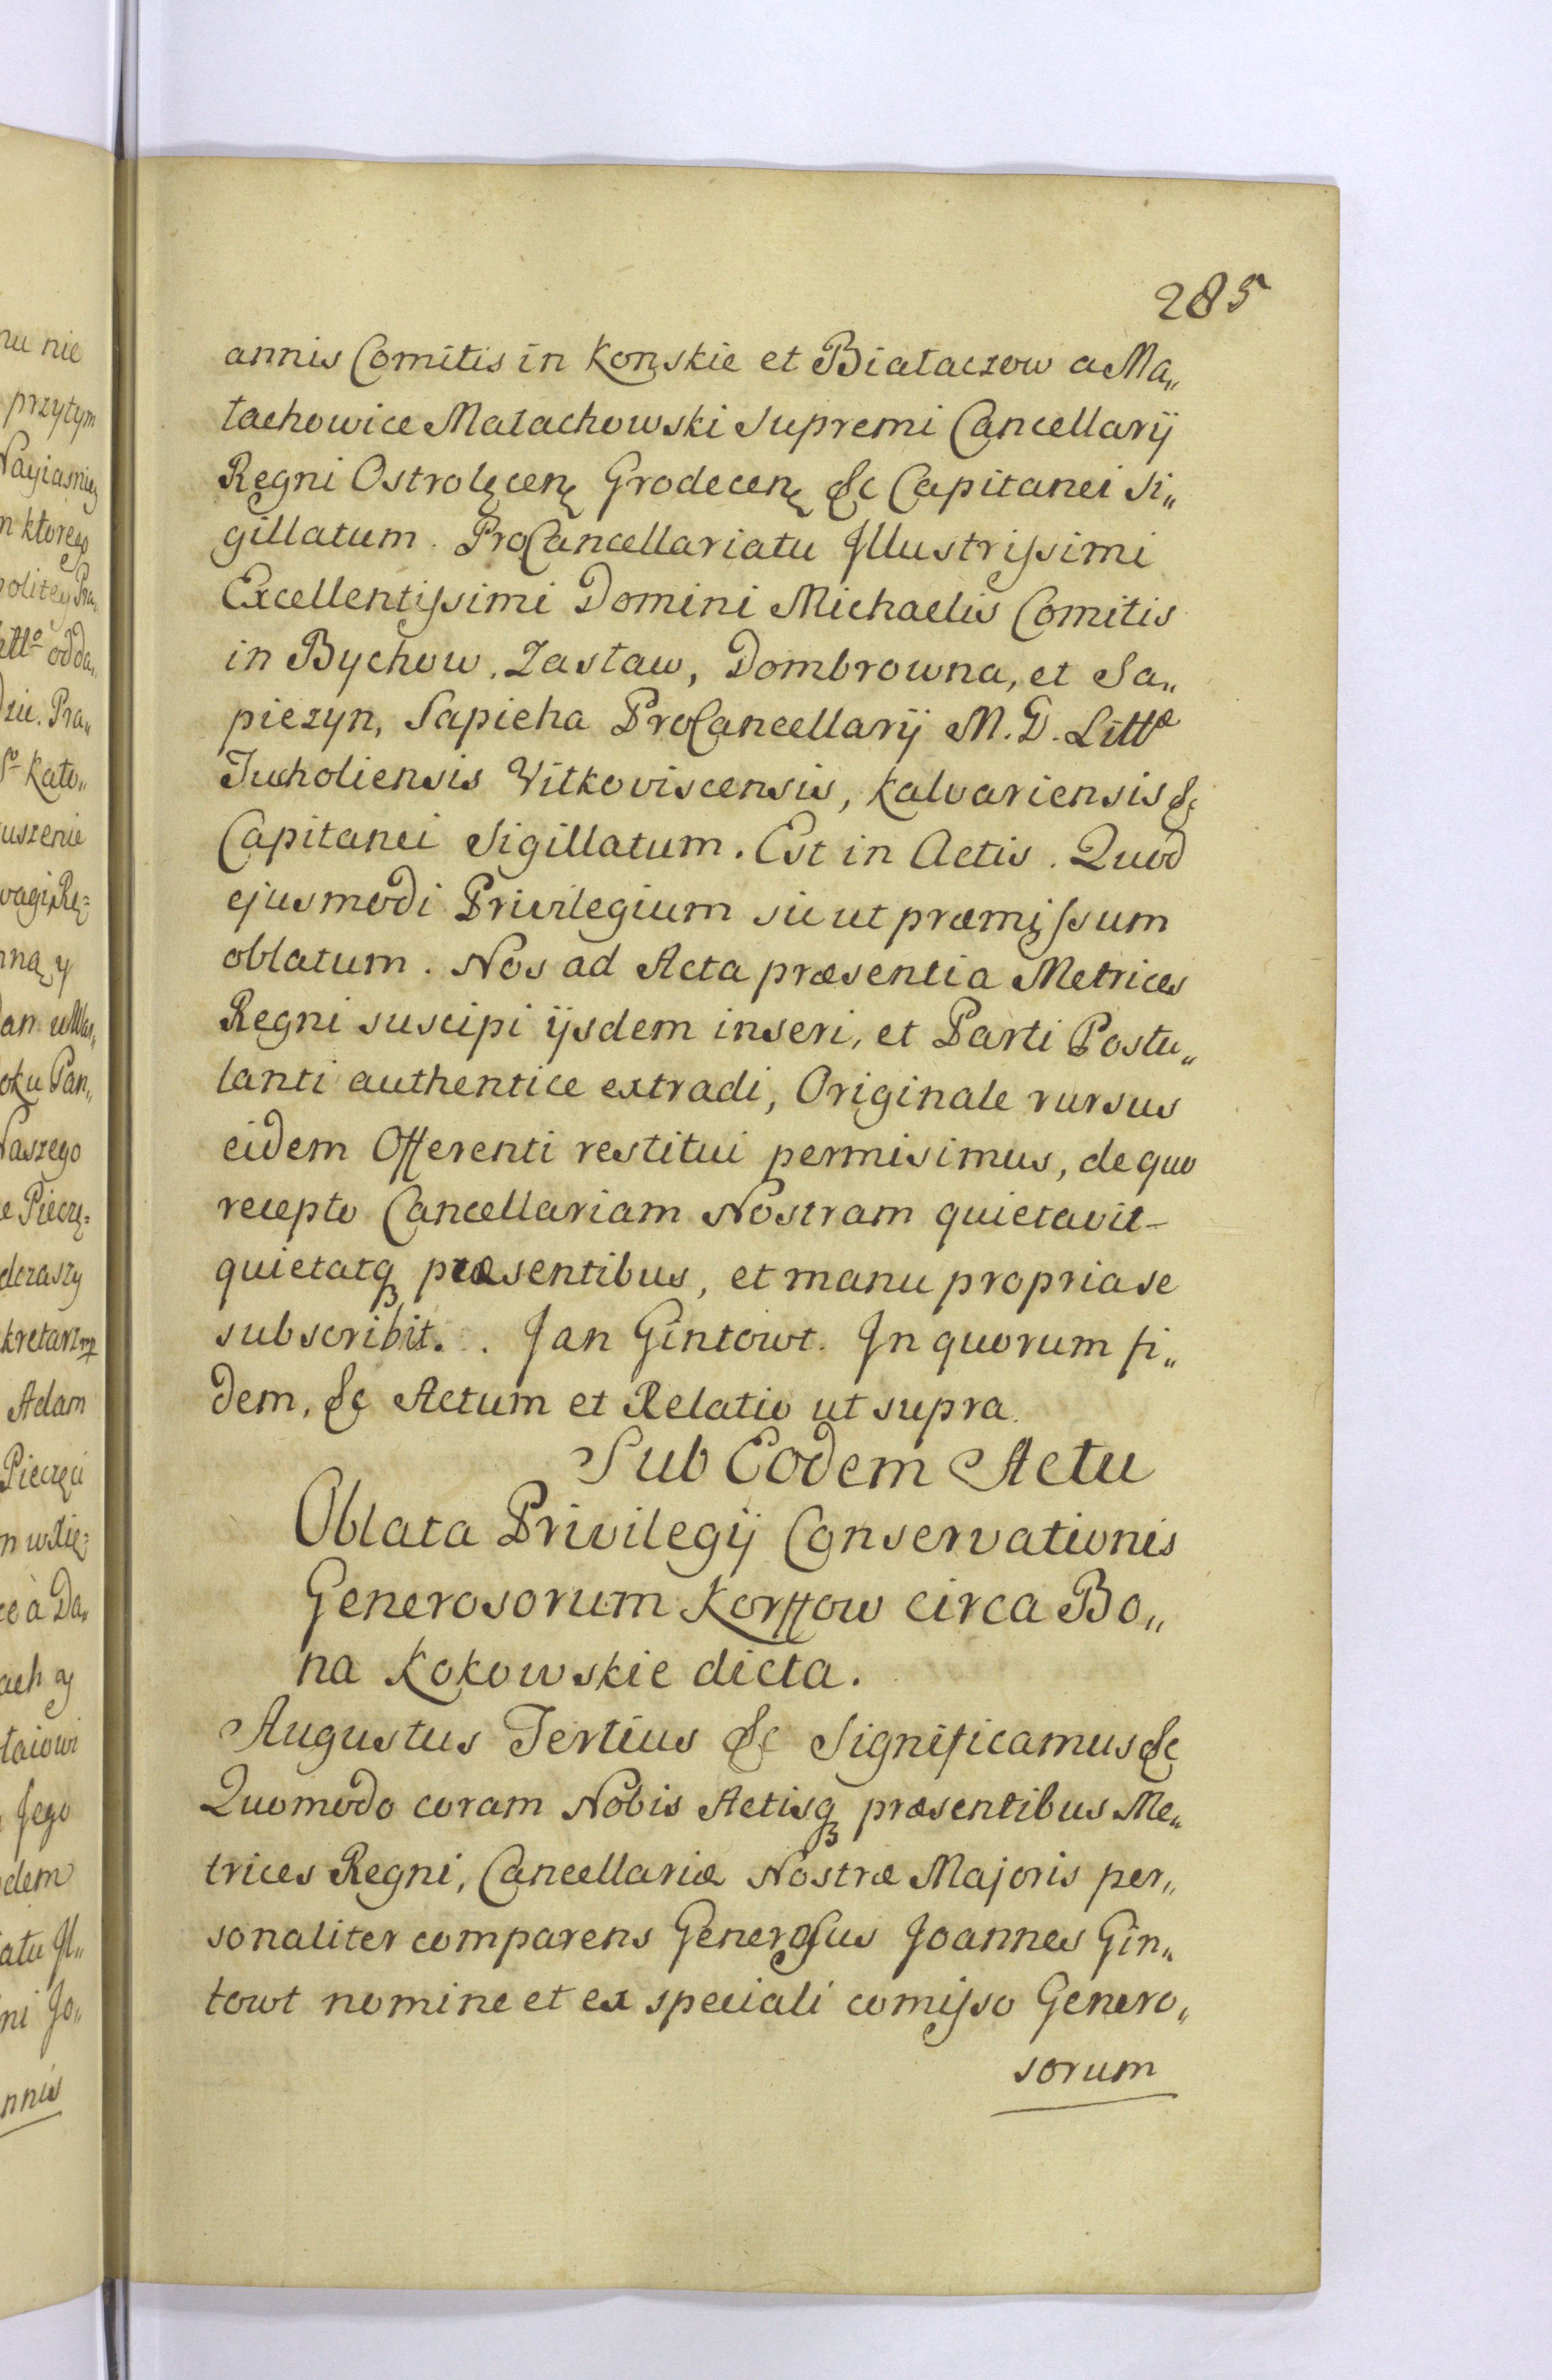 285
annis Comitis in Konskie et Białaczow a Ma„
łachowice Małachowski Supremi Cancellarij
Regni Ostrolęcen Grodecen &c Capitanei Si„
gillatum. ProCancellariatu Illustrissimi
Excellentissimi Domini Michaelis Comitis
in Bychow, Zasław, Dombrowna, et Sa„
piezyn, Sapieha ProCancellarij M. D. Litt
Tucholiensis Vilkoviscensis, Kalvariensis &c
Capitanei Sigillatum. Est in Actis. Quod
ejusmodi Privilegium sic ut præmissum
oblatum. Nos ad Acta præsentia Metrices
Regni suscipi ijsdem inseri, et Parti Postu„
lanti authentice extradi, Originale rursus
eidem Offerenti restitui permisimus, de quo
recepto Cancellariam Nostram quietavit
quietatq præsentibus, et manu propria se
subscribit. . Jan Gintowt. In quorum fi„
dem, &c Actum et Relatio ut supra.
Sub Eodem Actu
Oblata Privilegij Conservationis
Generosorum Korffow circa Bo„
na Kokowskie dicta.
Augustus Tertius &c Significamus &c
Quomodo coram Nobis Actisq præsentibus Me„
trices Regni, Cancellariæ Nostræ Majoris per„
sonaliter comparens Generosus Joannes Gin„
towt nomine et ex speciali comisso Genero„
sorum